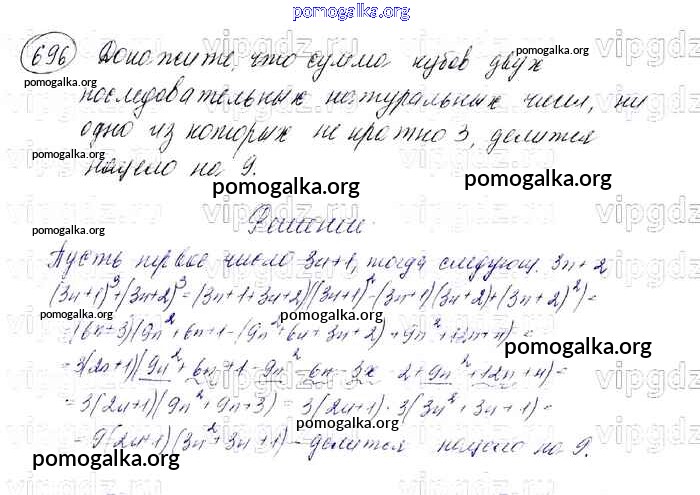 pomogalka.org
696 Докажите, что сумма кубов двух
последовательных натуральных чисел, ни
одно из которых не кратно 3, делится
нацело на 9.
Решение.
Пусть первое число 3n+1, тогда следующ. 3n+2
(3n+1)³+(3n+2)³=(3n+1+3n+2)((3n+1)²-(3n+1)(3n+2)+(3n+2)²)=
=(6n+3)(9n²+6n+1-(9n²+6n+3n+2)+9n²+12n+4)=
=3(2n+1)(9n²+6n+1-9n²-6n-3n-2+9n²+12n+4)=
=3(2n+1)(9n²+9n+3)=3(2n+1)·3(3n²+3n+1)=
=9(2n+1)(3n²+3n+1) - делится нацело на 9.
pomogalka.org
pomogalka.org
pomogalka.org
pomogalka.org
pomogalka.org
pomogalka.org
pomogalka.org
pomogalka.org
pomogalka.org
pomogalka.org
pomogalka.org
pomogalka.org
vipgdz.ru
vipgdz.ru
vipgdz.ru